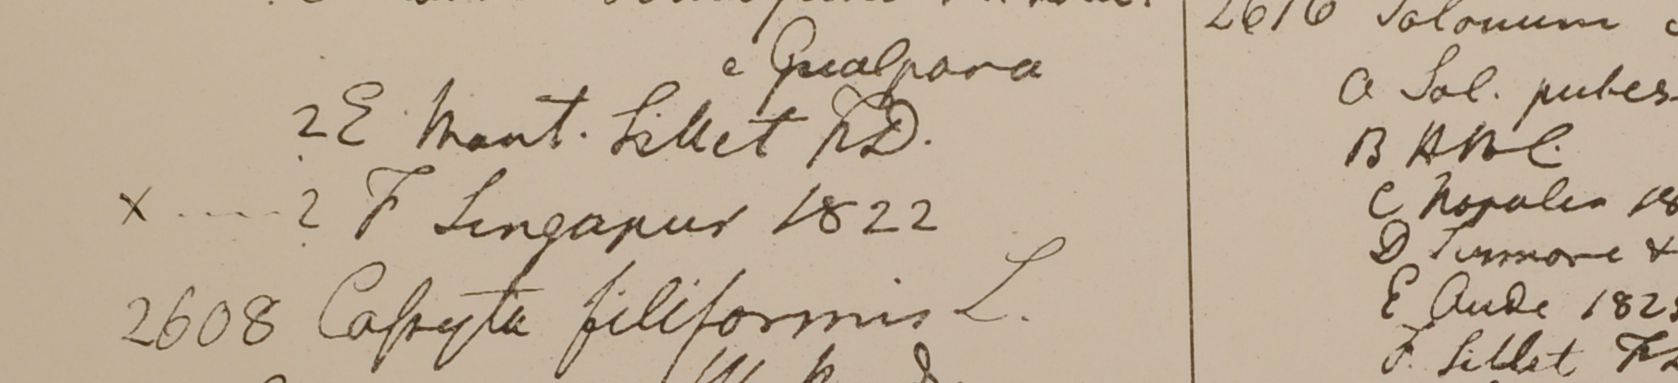 e Gualpara
2 E Mont. Sillet F.D.
x ---- 2 F Singapur 1822
2608 Cassyta filiformis L.
2616 Solanum
a Sol. pubes
B HBC.
C Nopalia 18
D Turmore &
E Oude 182
F. Sillet F.